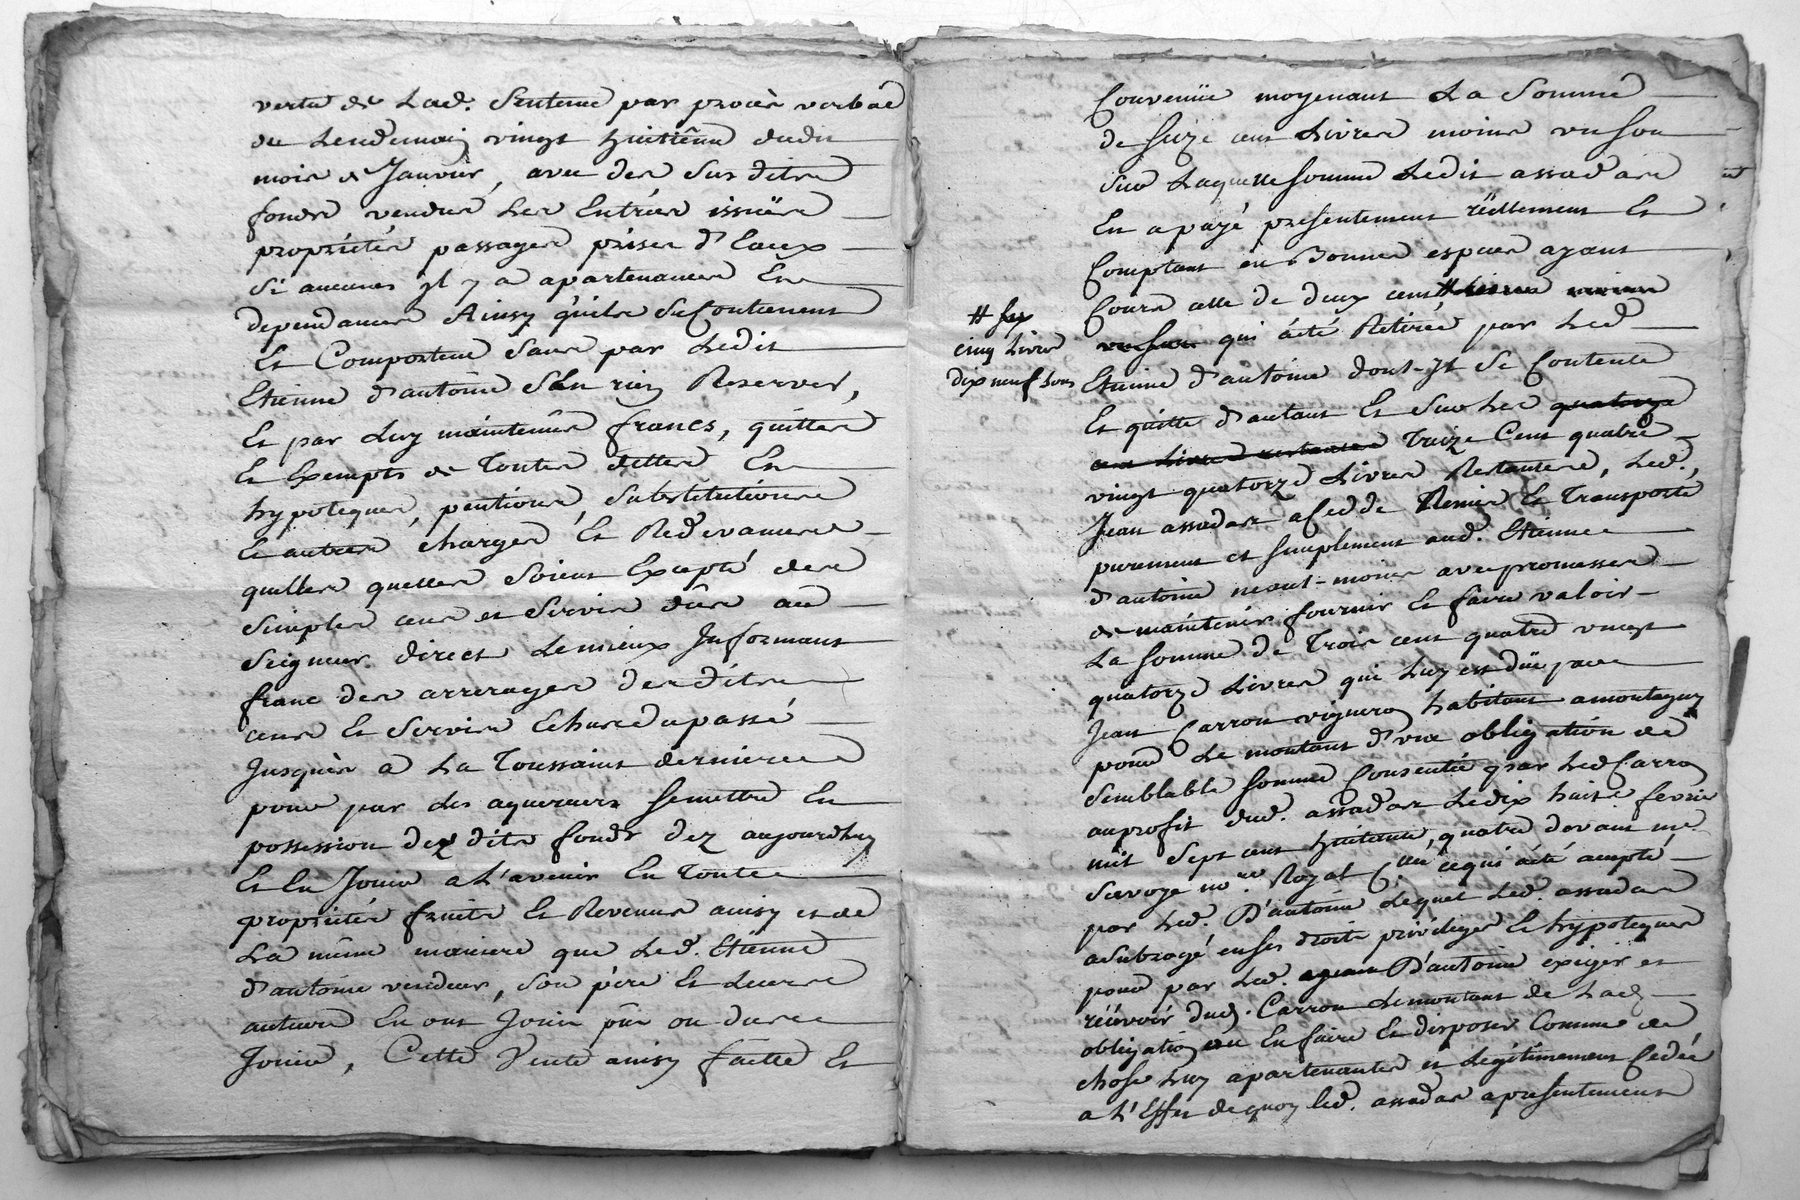 vertu de Lad. Sentence par procès verbal
du Lendemain vingt huitième dudit
mois de Janvier, avec des Sus dits
fonds vendus Les Entrées issües
propriétés passages prises d'Eaux
Si aucunes yl y a apartenances Et
dependances Ainsy qu'ils se Contienent
Et Comportent Sans par Ledit
Etienne d'antoine S'En rien Reserver,
Et par Luy maintenus francs, quittes
Et Exempts de Toutes dettes Et
hypoteques, pentions, Substitutions
Et autres charges Et Redevances
quelles quelles Soient Excepté des
Simples cens et Servis dûs au
Seigneur direct Lemieux Informant
franc des arrerages desdits
cens Et Servis Echus du passé
Jusques a La Toussaint derniere
pour par les aquereurs Semettre En
possession dez dits fonds dez aujourdhuy
Et En Jouir a L'avenir En Toute
propriétés fruits Et Revenus ainsy et de
La même maniere que Led. Etienne
d'antoine vendeur, Son père Et Leurs
auteurs En ont Joui pû ou dus
Jouir, Cette Vente ainsy faitte Et
Convenüe moyenant La Somme
de Seize cent Livres moins un Sou
Sur Laquelle Somme Ledit assadas
En a payé presentement réellement Et
Comptant en Bonnes especes ayant
Cours celle de deux cent # Livres moins
un Sou qui a été Retirée par Led
# Six
cinq Livres
dix neuf sous
Etienne d'antoine dont-Jl Se Contente
Et quitte d'autant Et Sur Les quatorze
cent Livres restantes Treize Cent quatre
vingt quatorze Livres Restantes, Led.
Jean assadas a Cedde Remis Et Transporté
purement et Simplement aud. Etienne
d'antoine neant-moins avec promesses
de maintenir fournir Et faire valoir
La Somme de Trois cent quatre vingt
quatorze Livres qui Luy est düe par
Jean Carron vigneron habitant a montagny
pour Le montant d'une obligation de
Semblable Somme Consentie par Led Carron
au profit dud. assadas Le dix huit fevrier
mil Sept cent huitante quatre devant me
not.re Royal ce qui a été accepté
par Led. D'antoine Lequel Led. assadas
a Subrogé en ses droits privileges Et hypoteques
pour par Led. D'antoine exiger et
reçevoir dud. Carron Lemontant de Lad
obligation En faire Et disposer Comme de
chose Luy apartenante et Legitimement Cedée
a L'Effet de quoy led. assadas a presentement